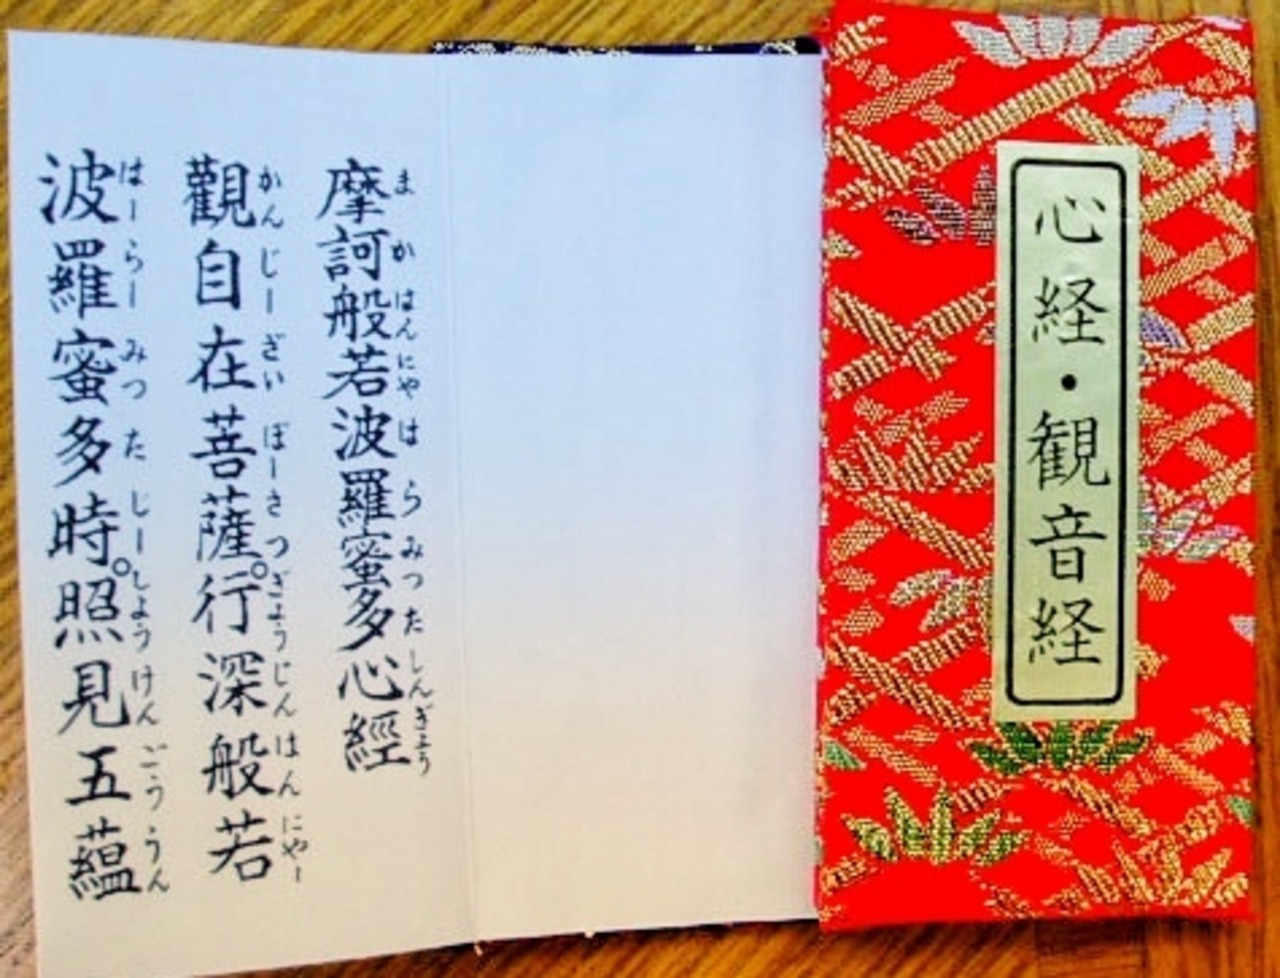 心経・観音経
摩訶般若波羅蜜多心經
まかはんにやはらみつたしんぎょう
觀自在菩薩。行深般若
かんじーざいぼーさつぎょうじんはんにゃー
波羅蜜多時。照見五蘊
はーらーみつたじーしょうけんごううん